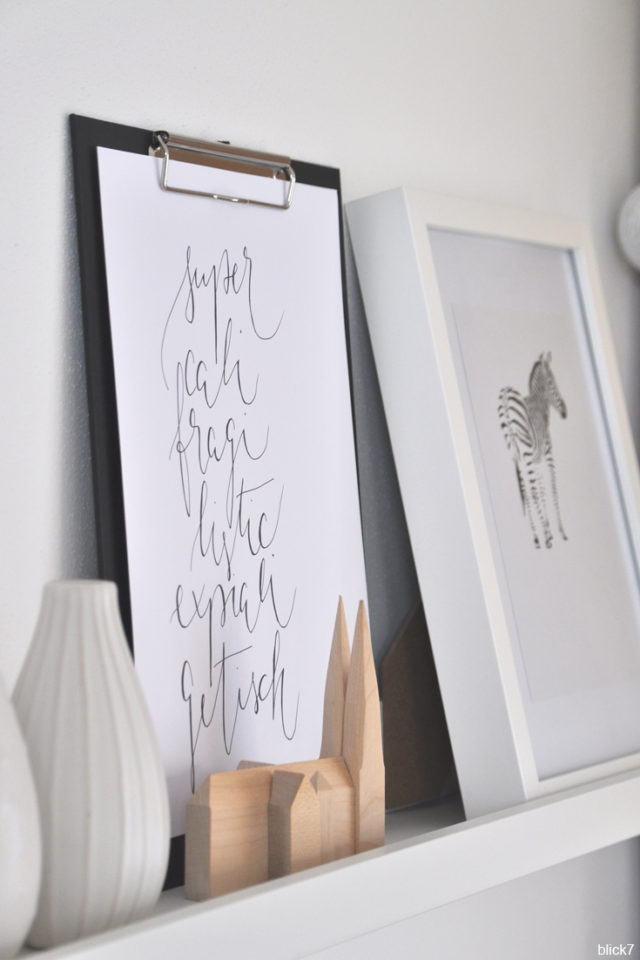 super
cali
fragi
listic
expiali
getisch
blick7